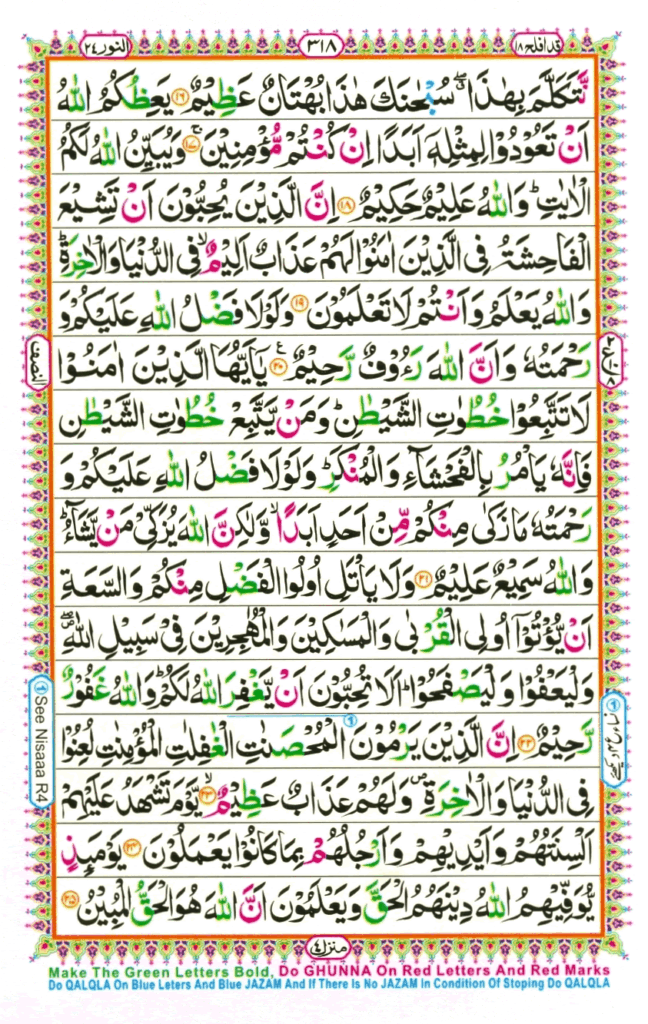 قد افلح ١٨
٣١٨
النور ٢٤
نَّتَكَلَّمَ بِهٰذَا ۖ سُبْحٰنَكَ هٰذَا بُهْتَانٌ عَظِيْمٌ ﴿١٦﴾ يَعِظُكُمُ اللّٰهُ
اَنْ تَعُوْدُوْا لِمِثْلِهٖۤ اَبَدًا اِنْ كُنْتُمْ مُّؤْمِنِيْنَ ۚ﴿١٧﴾ وَيُبَيِّنُ اللّٰهُ لَكُمُ
الْاٰيٰتِ ؕ وَاللّٰهُ عَلِيْمٌ حَكِيْمٌ ﴿١٨﴾ اِنَّ الَّذِيْنَ يُحِبُّوْنَ اَنْ تَشِيْعَ
الْفَاحِشَةُ فِى الَّذِيْنَ اٰمَنُوْا لَهُمْ عَذَابٌ اَلِيْمٌ ۙ فِى الدُّنْيَا وَالْاٰخِرَةِ ؕ
وَاللّٰهُ يَعْلَمُ وَاَنْتُمْ لَا تَعْلَمُوْنَ ﴿١٩﴾ وَلَوْلَا فَضْلُ اللّٰهِ عَلَيْكُمْ وَ
رَحْمَتُهٗ وَاَنَّ اللّٰهَ رَءُوْفٌ رَّحِيْمٌ ﴿٢٠﴾ يٰۤاَيُّهَا الَّذِيْنَ اٰمَنُوْا
لَا تَتَّبِعُوْا خُطُوٰتِ الشَّيْطٰنِ ؕ وَمَنْ يَّتَّبِعْ خُطُوٰتِ الشَّيْطٰنِ
فَاِنَّهٗ يَاْمُرُ بِالْفَحْشَآءِ وَالْمُنْكَرِ ؕ وَلَوْلَا فَضْلُ اللّٰهِ عَلَيْكُمْ وَ
رَحْمَتُهٗ مَا زَكٰى مِنْكُمْ مِّنْ اَحَدٍ اَبَدًا ۙ وَّلٰكِنَّ اللّٰهَ يُزَكِّىْ مَنْ يَّشَآءُ ؕ
وَاللّٰهُ سَمِيْعٌ عَلِيْمٌ ﴿٢١﴾ وَلَا يَاْتَلِ اُولُوا الْفَضْلِ مِنْكُمْ وَالسَّعَةِ
اَنْ يُّؤْتُوْۤا اُولِى الْقُرْبٰى وَالْمَسٰكِيْنَ وَالْمُهٰجِرِيْنَ فِىْ سَبِيْلِ اللّٰهِ ۖ
وَلْيَعْفُوْا وَلْيَصْفَحُوْا ؕ اَلَا تُحِبُّوْنَ اَنْ يَّغْفِرَ اللّٰهُ لَكُمْ ؕ وَاللّٰهُ غَفُوْرٌ
رَّحِيْمٌ ﴿٢٢﴾ اِنَّ الَّذِيْنَ يَرْمُوْنَ الْمُحْصَنٰتِ الْغٰفِلٰتِ الْمُؤْمِنٰتِ لُعِنُوْا
فِى الدُّنْيَا وَالْاٰخِرَةِ ۪ وَلَهُمْ عَذَابٌ عَظِيْمٌ ۙ﴿٢٣﴾ يَّوْمَ تَشْهَدُ عَلَيْهِمْ
اَلْسِنَتُهُمْ وَاَيْدِيْهِمْ وَاَرْجُلُهُمْ بِمَا كَانُوْا يَعْمَلُوْنَ ﴿٢٤﴾ يَوْمَئِذٍ
يُّوَفِّيْهِمُ اللّٰهُ دِيْنَهُمُ الْحَقَّ وَيَعْلَمُوْنَ اَنَّ اللّٰهَ هُوَ الْحَقُّ الْمُبِيْنُ ﴿٢٥﴾
النصف
See Nisaaa R4
منزل ٤
Make The Green Letters Bold, Do GHUNNA On Red Letters And Red Marks
Do QALQLA On Blue Leters And Blue JAZAM And If There Is No JAZAM In Condition Of Stoping Do QALQLA